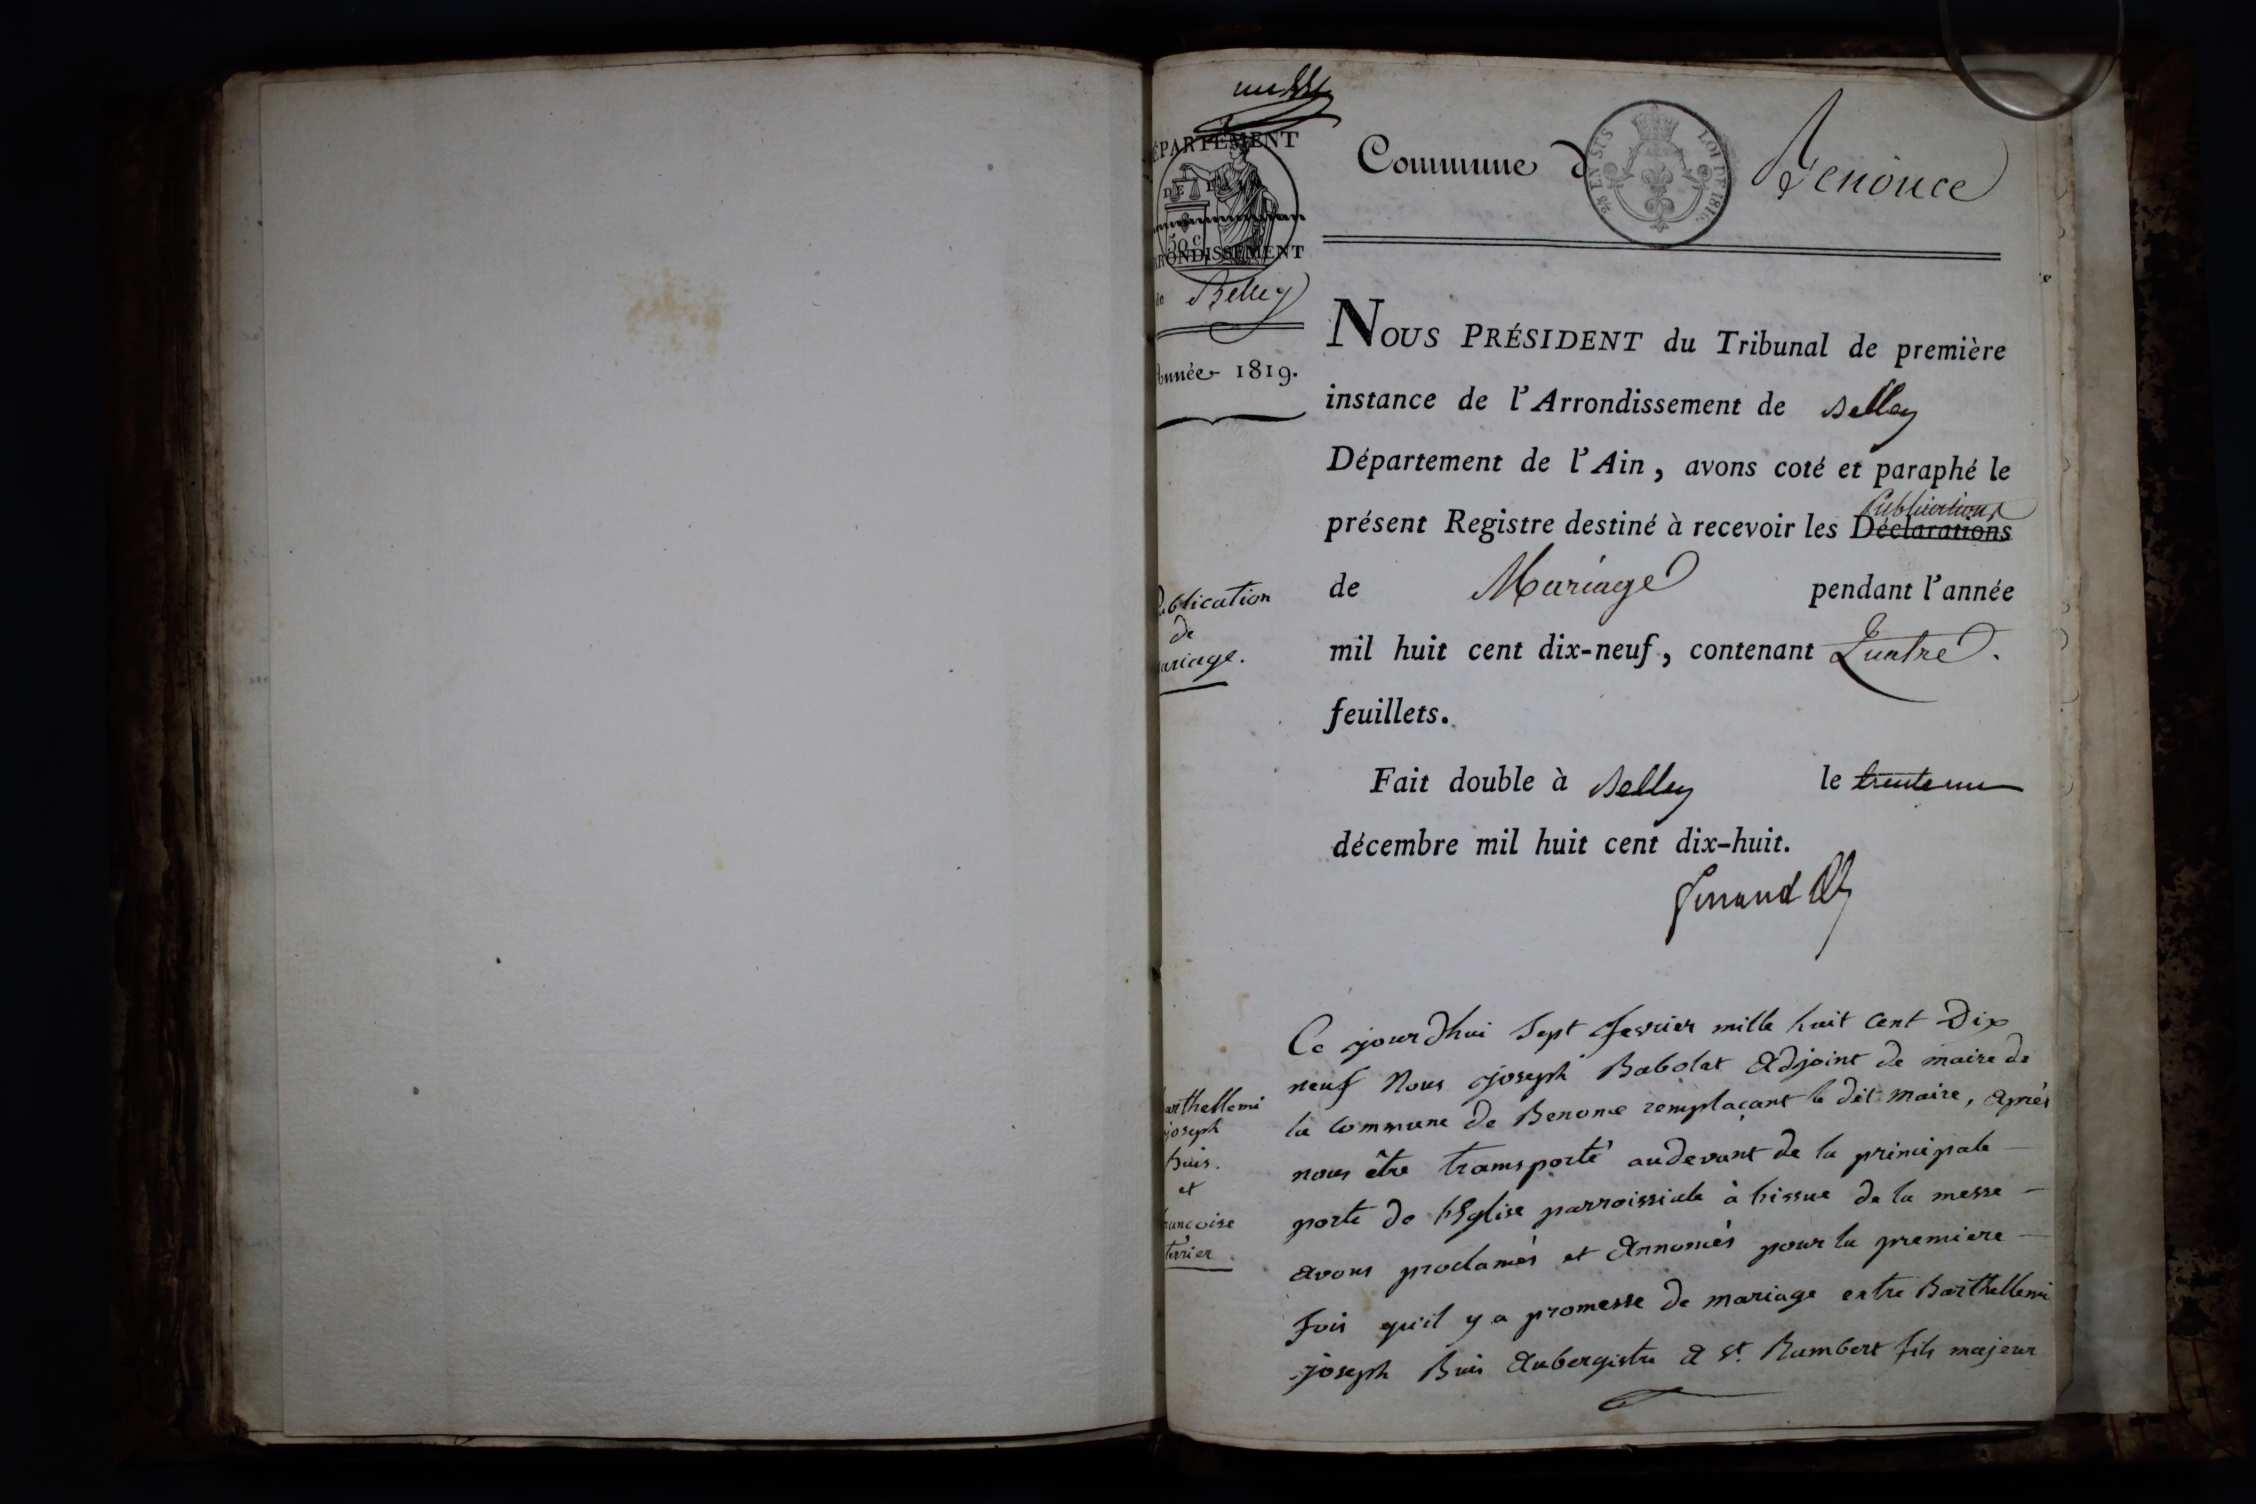 DÉPARTEMENT
DE L'AIN
50 C
ARRONDISSEMENT
de Belley
Année 1819.
Commune de Benonce
25 EN SUS LOI DE 1816.
NOUS PRÉSIDENT du Tribunal de première
instance de l'Arrondissement de Belley
Département de l'Ain, avons coté et paraphé le
Publications
présent Registre destiné à recevoir les Déclarations
de Mariage pendant l'année
mil huit cent dix-neuf, contenant Quatre.
feuillets.
Fait double à Belley le trente un
décembre mil huit cent dix-huit.
Publication
de
mariage.
Barthellemi
joseph
buis.
et
francoise
terrier
Ce jourdhui Sept fevrier mille huit cent Dix
neuf Nous joseph Babolat Adjoint de maire de
la commune de Benonce remplaçant le dit maire, Après
nous être transporté audevant de la principale
porte de l'Eglise parroissiale à l'issue de la messe
avons proclamés et Annoncés pour la premiere
fois qu'il y a promesse de mariage entre Barthellemi
joseph Buis Aubergiste A St. Rambert fils majeur